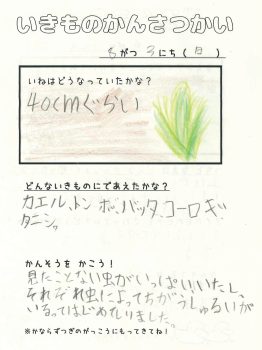 いきものかんさつかい
8がつ 3にち(日)
いねはどうなっていたかな?
40cmぐらい
どんないきものにであえたかな?
カエル、トンボ、バッタ、コーロギ、
タニシ。
かんそうを かこう!
見たことない虫がいっぱいいたし、
それぞれ虫によってちがうしゅるいが
いるってはじめてしりました。
※かならずつぎのがっこうにもってきてね!